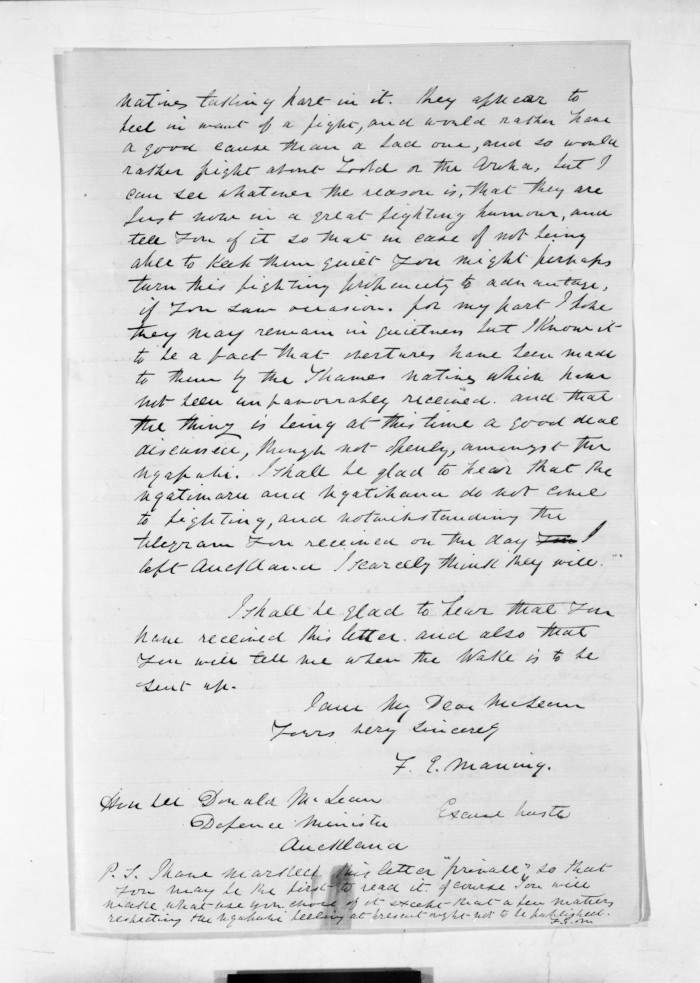 natives taking part in it. they appear to
feel in want of a fight, and would rather have
a good cause than a bad one, and so would
rather fight about Todd or the Aroha, but I
can see whatever the reason is, that they are
just now in a great fighting humour, and
tell you of it so that in case of not being
able to keep them quiet you might perhaps
turn this fighting propensity to advantage,
if you saw occasion. for my part I hope
they may remain in quietness but I know it
to be a fact that overtures have been made
to them by the Thames natives which have
not been unfavourably received. and that
the thing is being at this time a good deal
discussed, though not openly, amongst the
Ngapuhi. I shall be glad to hear that the
Ngatimaru and Ngatihaua do not come
to fighting, and notwithstanding the
telegram you received on the day I
left Auckland I scarcely think they will.
I shall be glad to hear that you
have received this letter. and also that
you will tell me when the Wake is to be
sent up.
I am My Dear McLean
Yours very sincerely
F. E. Maning.
Honble Donald McLean
Defence Minister
Excuse haste
Auckland
P.S. I have marked this letter "private", so that
you may be the first to read it. of course you will
make what use you chose of it except that a few matters
respecting the Ngapuhi feeling at present ought not to be published.
F.E.M